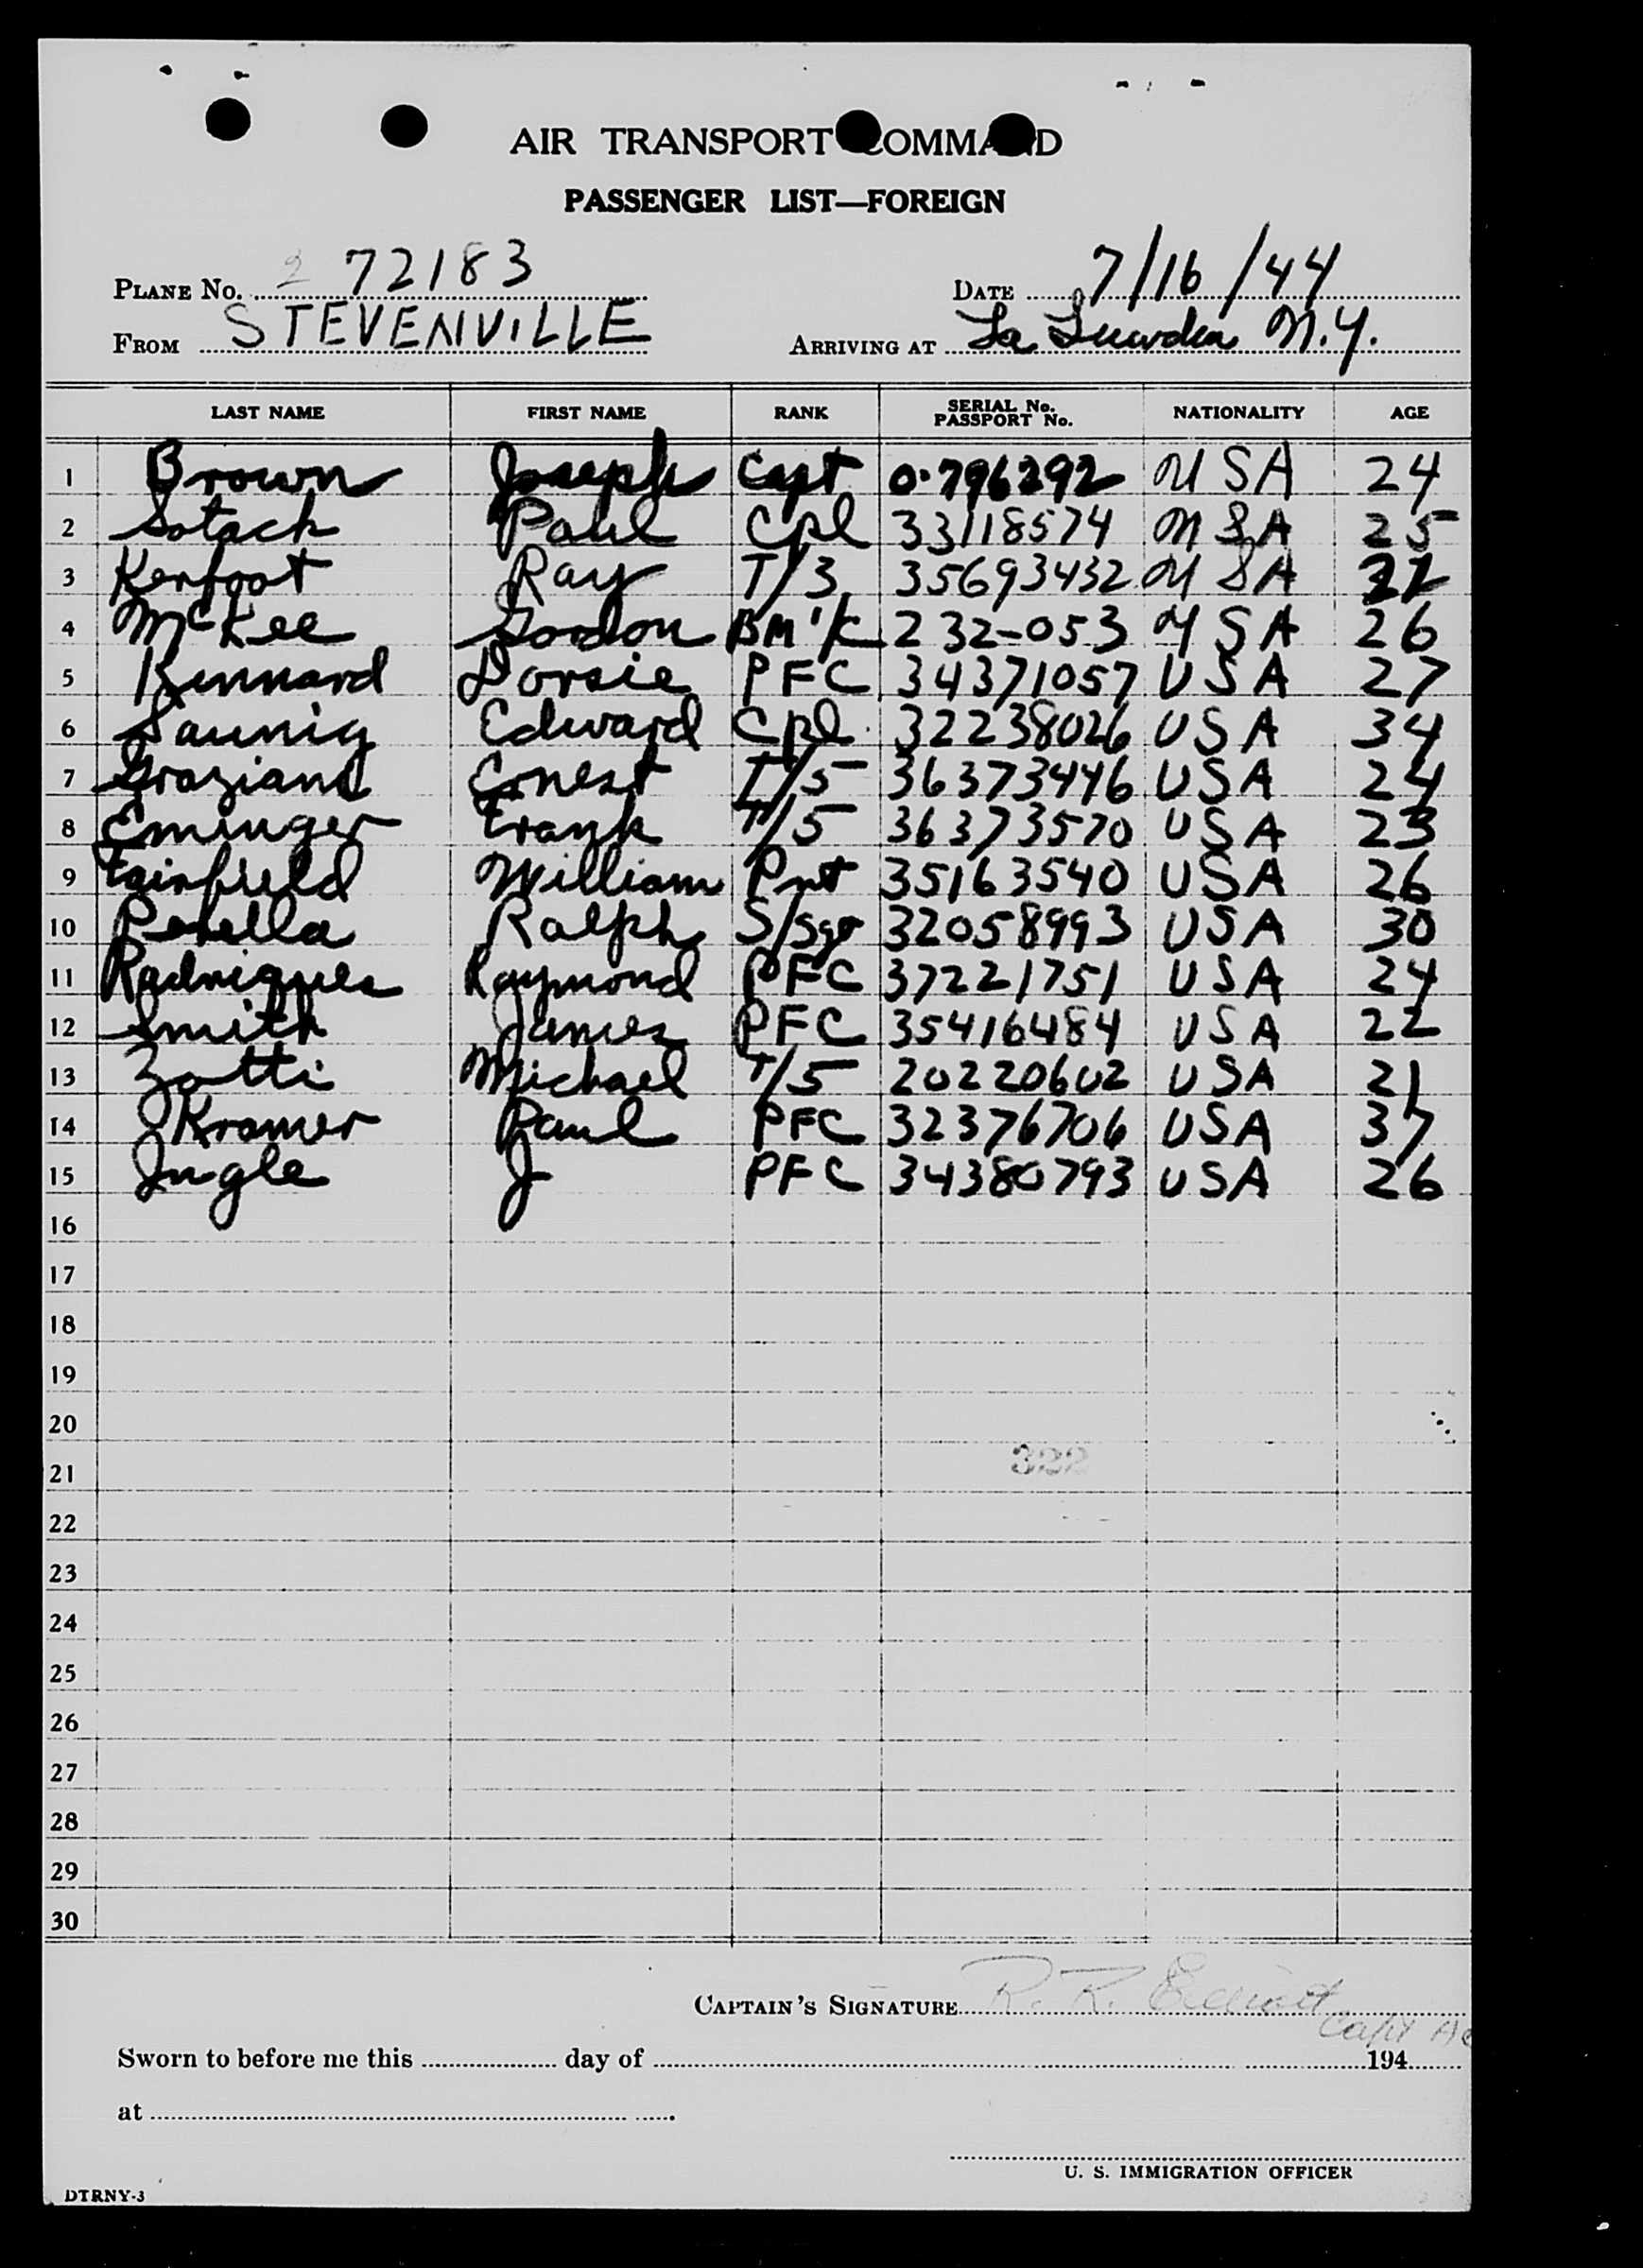 AIR TRANSPORT COMMAND
PASSENGER LIST—FOREIGN
PLANE No. 2 72183 DATE 7/16/44
FROM STEVENVILLE ARRIVING AT La Guardia N.Y.
LAST NAME FIRST NAME RANK SERIAL No. PASSPORT No. NATIONALITY AGE
1 Brown Joseph Capt 0-796292 USA 24
2 Sotack Paul Cpl 33118574 USA 25
3 Kerfoot Ray T/3 35693432 USA 22
4 McKee Gordon BM 1/C 232-053 USA 26
5 Kennard Dorsie PFC 34371057 USA 27
6 Saunig Edward Cpl 32238026 USA 34
7 Graziano Ernest T/5 36373446 USA 24
8 Eminger Frank T/5 36373570 USA 23
9 Fairfield William Pvt 35163540 USA 26
10 Perella Ralph S/Sgt 32058993 USA 30
11 Radriques Raymond PFC 37221751 USA 24
12 Smith James PFC 35416484 USA 22
13 Zotti Michael T/5 20220602 USA 21
14 Kramer Paul PFC 32376706 USA 37
15 Ingle J PFC 34380793 USA 26
16
17
18
19
20
21 322
22
23
24
25
26
27
28
29
30
CAPTAIN'S SIGNATURE R. R. Elliott
Capt AC
Sworn to before me this day of 194
at
U. S. IMMIGRATION OFFICER
DTRNY-3